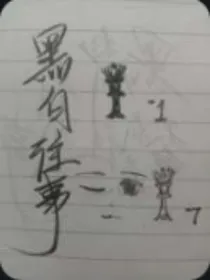 黑白往事
1
7